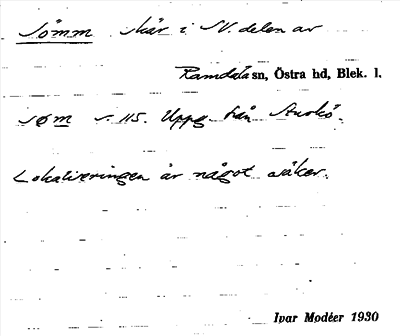 Sömm skär i N. delen av
Ramdala sn, Östra hd, Blek. l.
söm s. 115. Uppg. från Sturkö.
Lokaliseringen är något osäker.
Ivar Modéer 1930